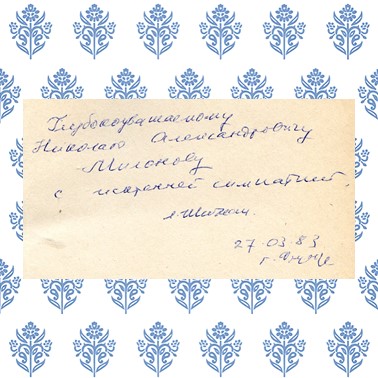 Глубокоуважаемому
Николаю Александровичу
Милонову
с искренней симпатией.
27.03.83
г.